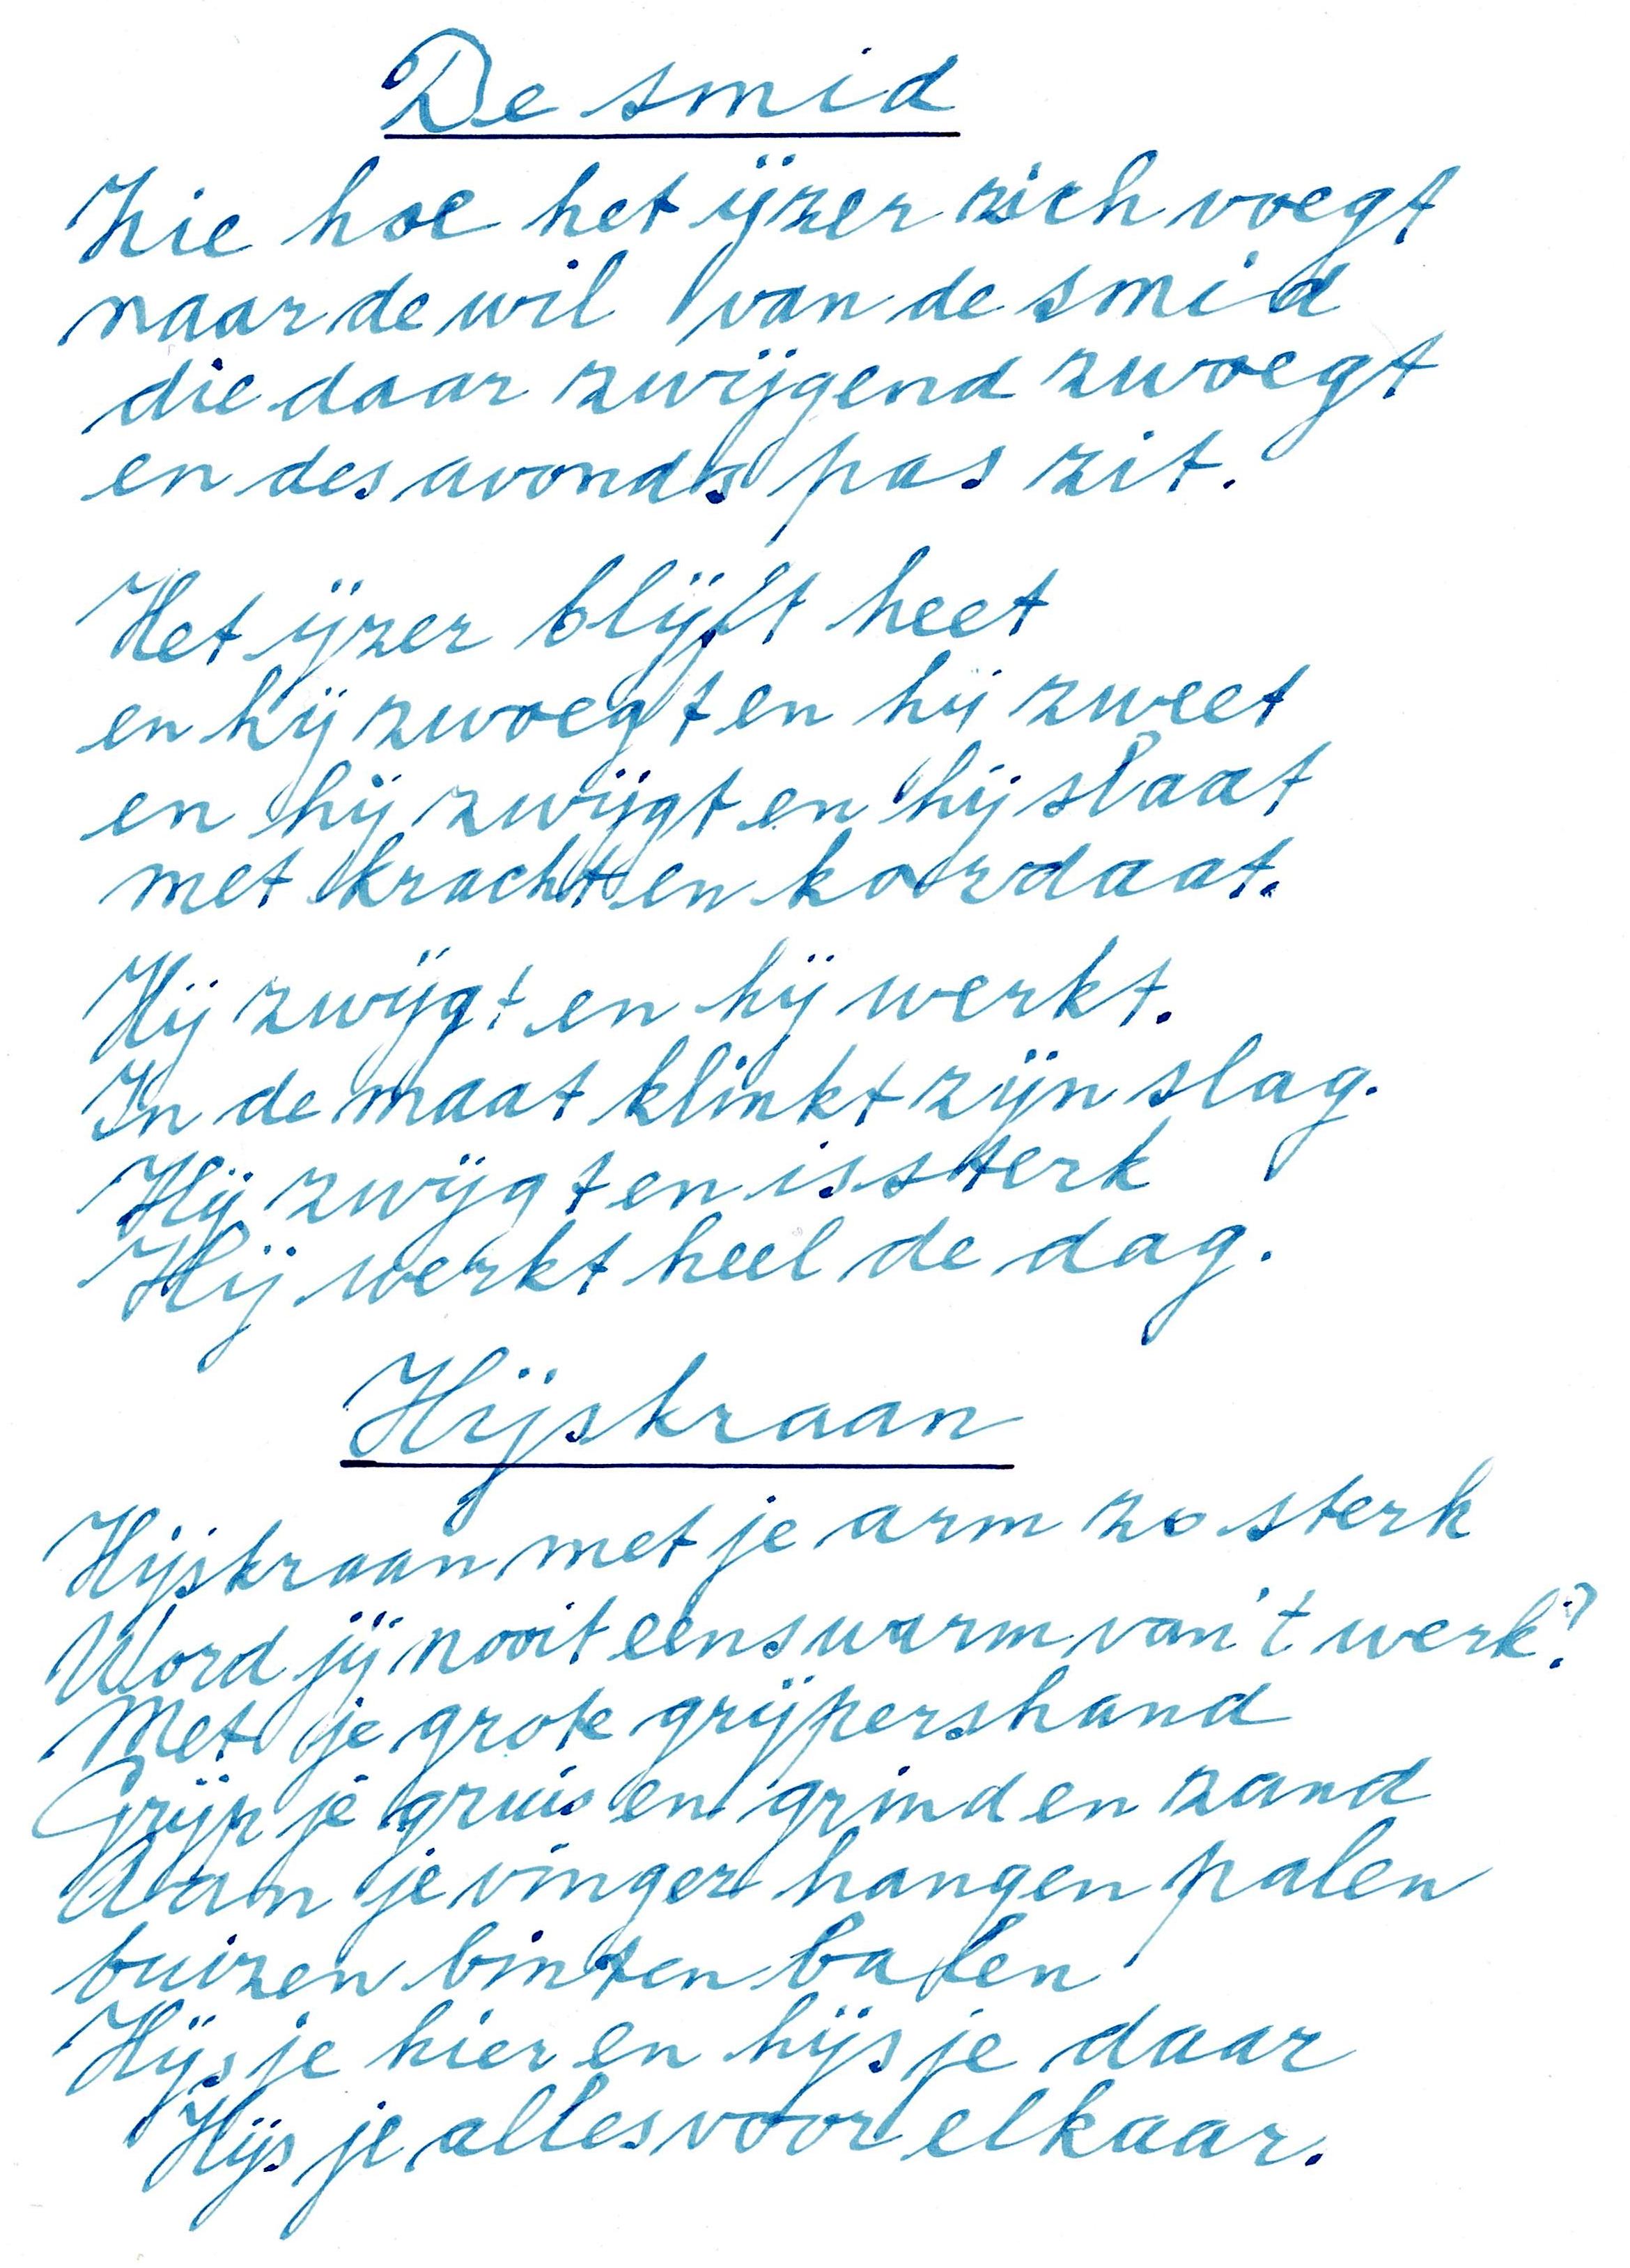 De smid
Zie hoe het ijzer zich voegt
naar de wil van de smid
die daar zwijgend zwoegt
en des avonds pas zit.
Het ijzer blijft heet
en hij zwoegt en hij zweet
en hij zwijgt en hij slaat
met kracht en kordaat.
Hij zwijgt en hij werkt.
In de maat klinkt zijn slag.
Hij zwijgt en is sterk
Hij werkt heel de dag.
Hijskraan
Hijskraan met je arm zo sterk
Word jij nooit eens warm van 't werk?
Met je grote grijpershand
Grijp je gruis en grind en zand
Aan je vinger hangen palen
buizen binten balen
Hijs je hier en hijs je daar
Hijs je alles voor elkaar.